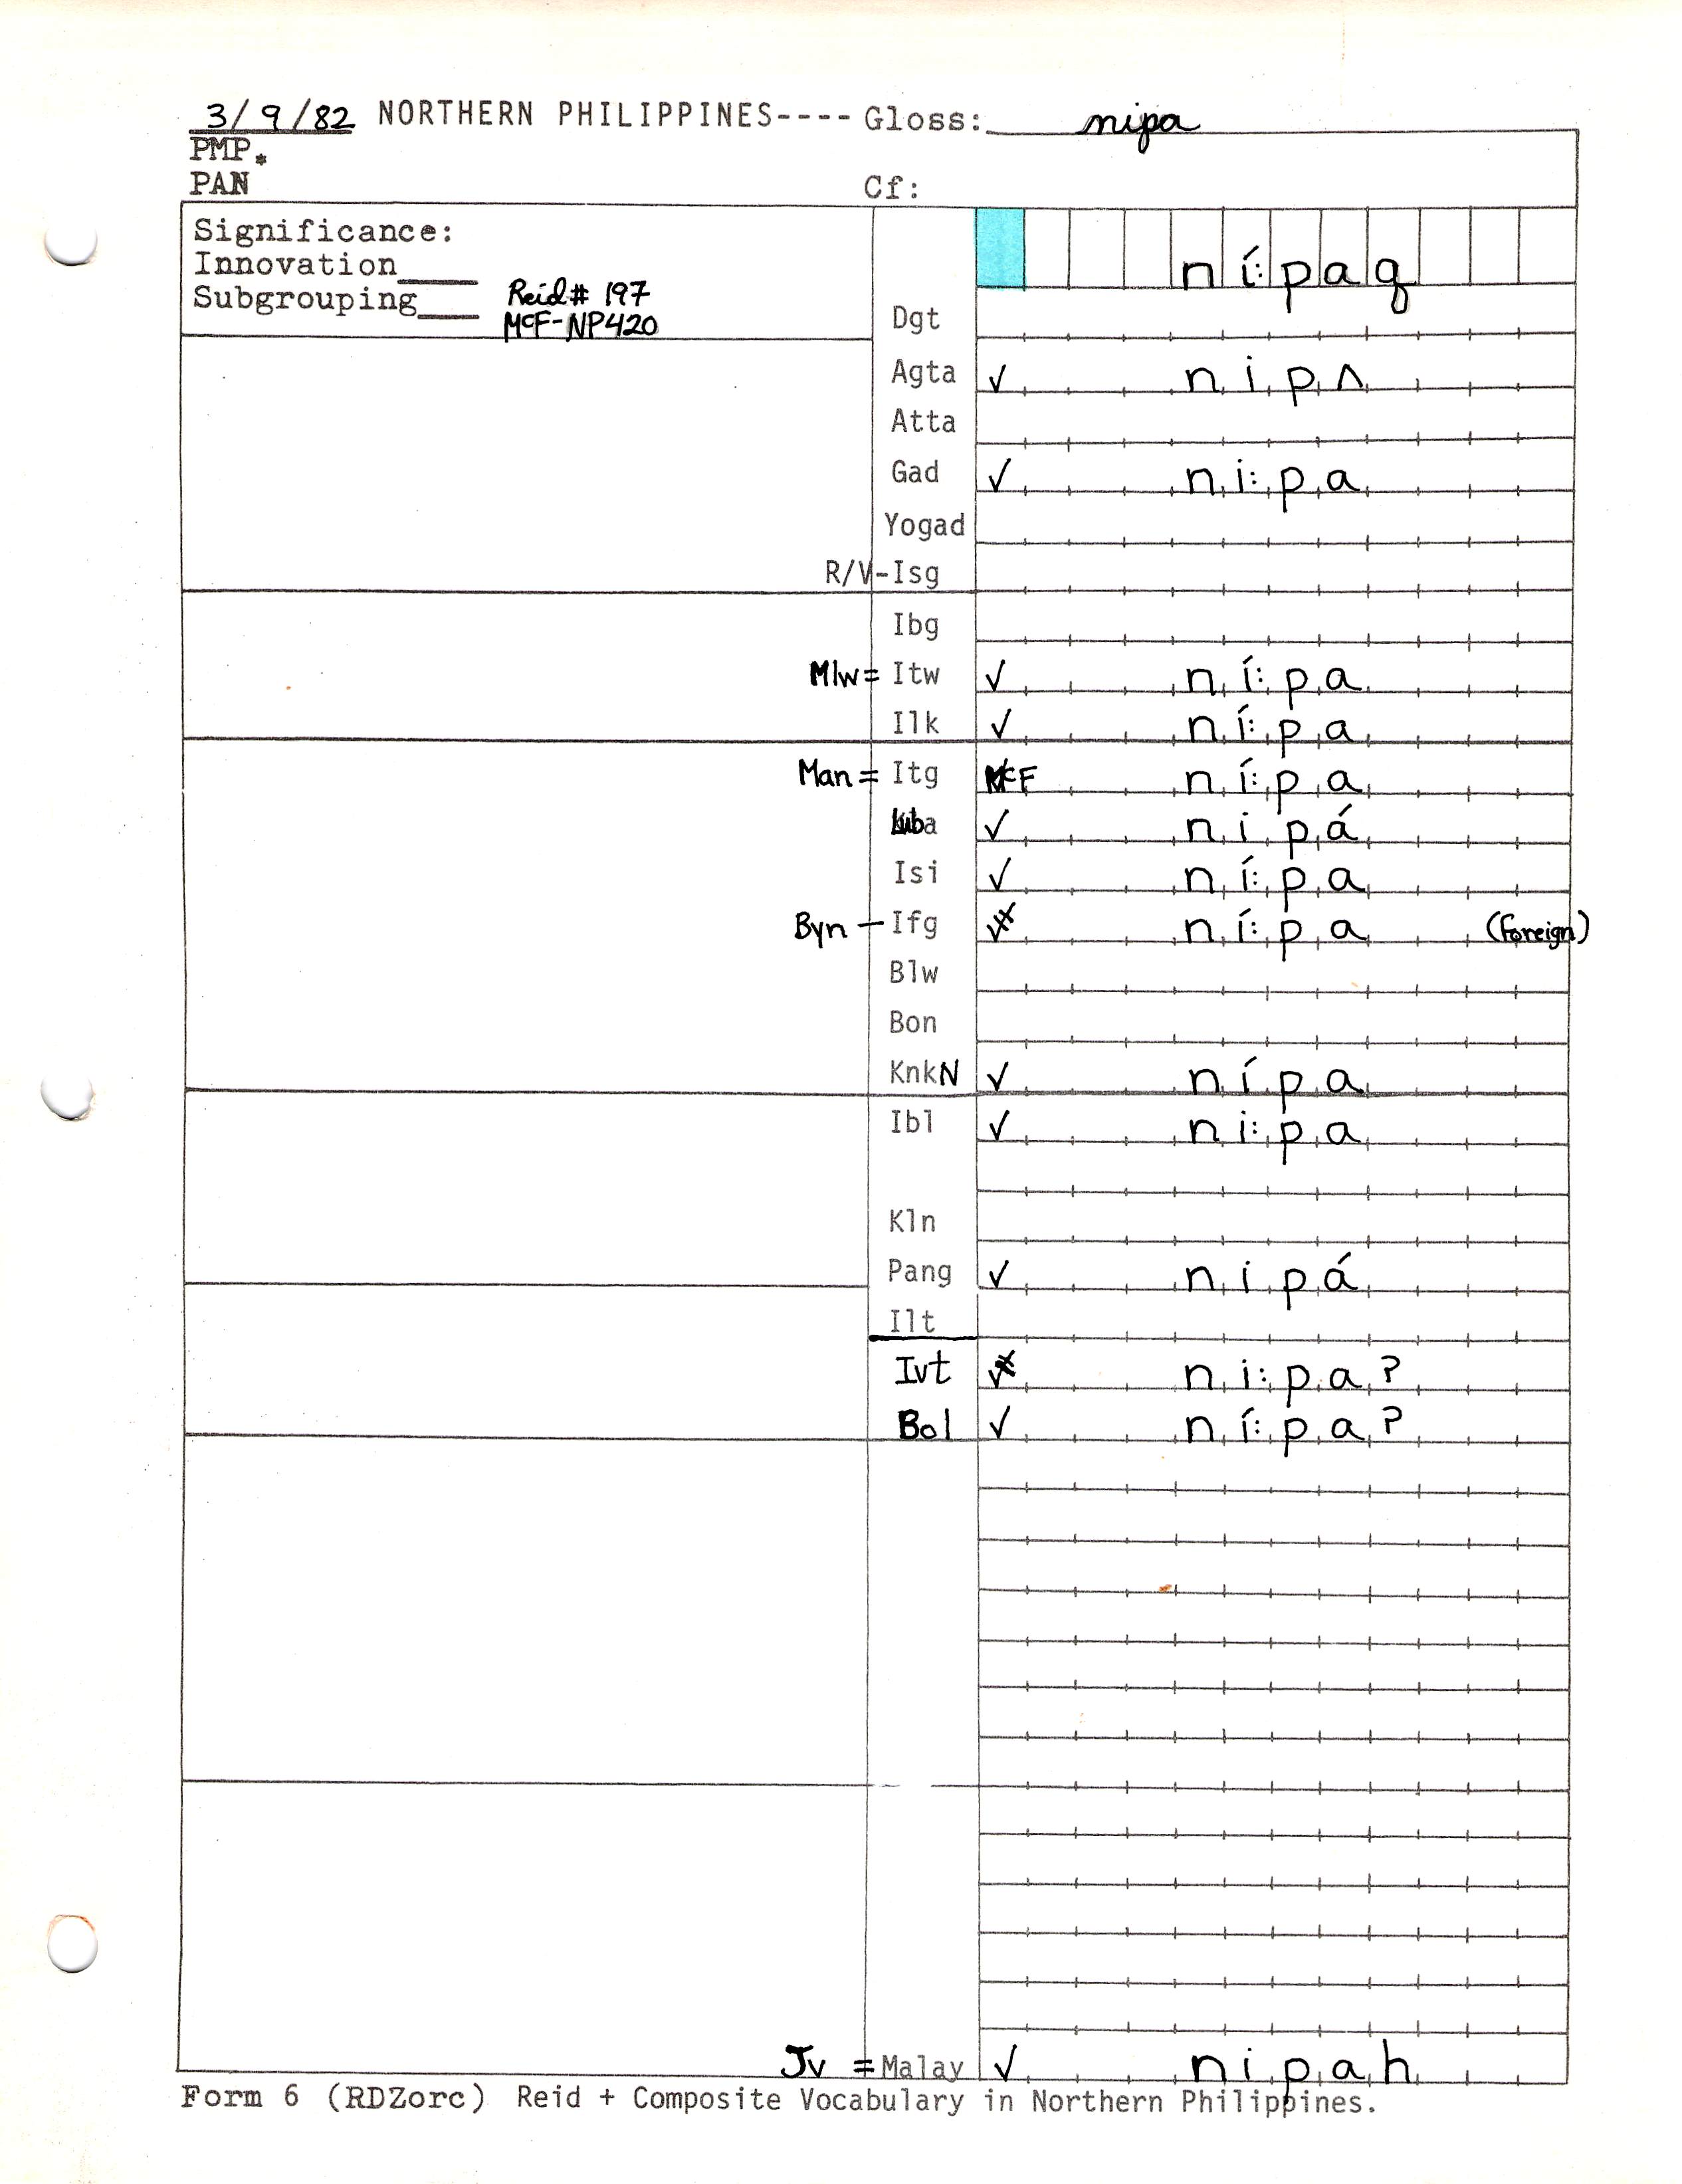 3/9/82 NORTHERN PHILIPPINES---- Gloss: nipa
PMP*
PAN Cf:
Significance:
Innovation____
Subgrouping____ Reid# 197
McF-NP420
ní:paq
Dgt
Agta ✓ nipʌ
Atta
Gad ✓ ni:pa
Yogad
R/V-Isg
Ibg
Mlw= Itw ✓ ní:pa
Ilk ✓ ní:pa
Man = Itg McF ní:pa
Luba ✓ nipá
Isi ✓ ní:pa
Byn – Ifg ní:pa (foreign)
Blw
Bon
KnkN ✓ nípa
Ibl ✓ ni:pa
Kln
Pang ✓ nipá
Ilt
Ivt ni:pa?
Bol ✓ ní:pa?
Jv = Malay ✓ nipah
Form 6 (RDZorc) Reid + Composite Vocabulary in Northern Philippines.